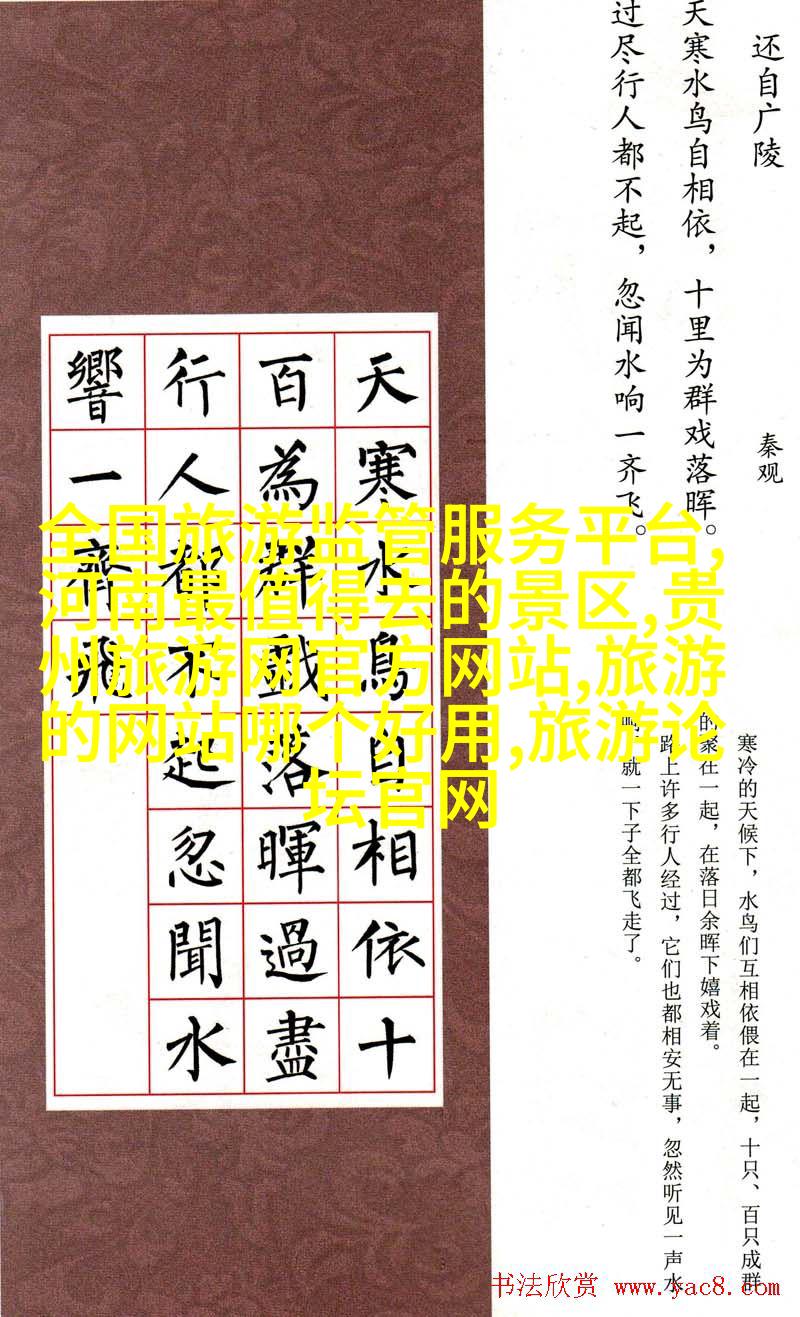 还自广陵
秦观
天寒水鸟自相依，十里为群戏落晖。
过尽行人都不起，忽闻水响一齐飞。
寒冷的天候下，水鸟们互相依偎在一起，十只、百只成群
的聚在一起，在落日余晖下嬉戏着。
路上许多行人经过，它们也都相安无事，忽然听见一声水
响，就一下子全都飞走了。
天寒水鳥自相依十
百為群戲落暉過盡
行人都不起忽聞水
響一齊飛
全国旅游监管服务平台,
河南最值得去的景区,贵
州旅游网官方网站,旅游
的网站哪个好用,旅游论
坛官网
书法欣赏 www.yac8.com